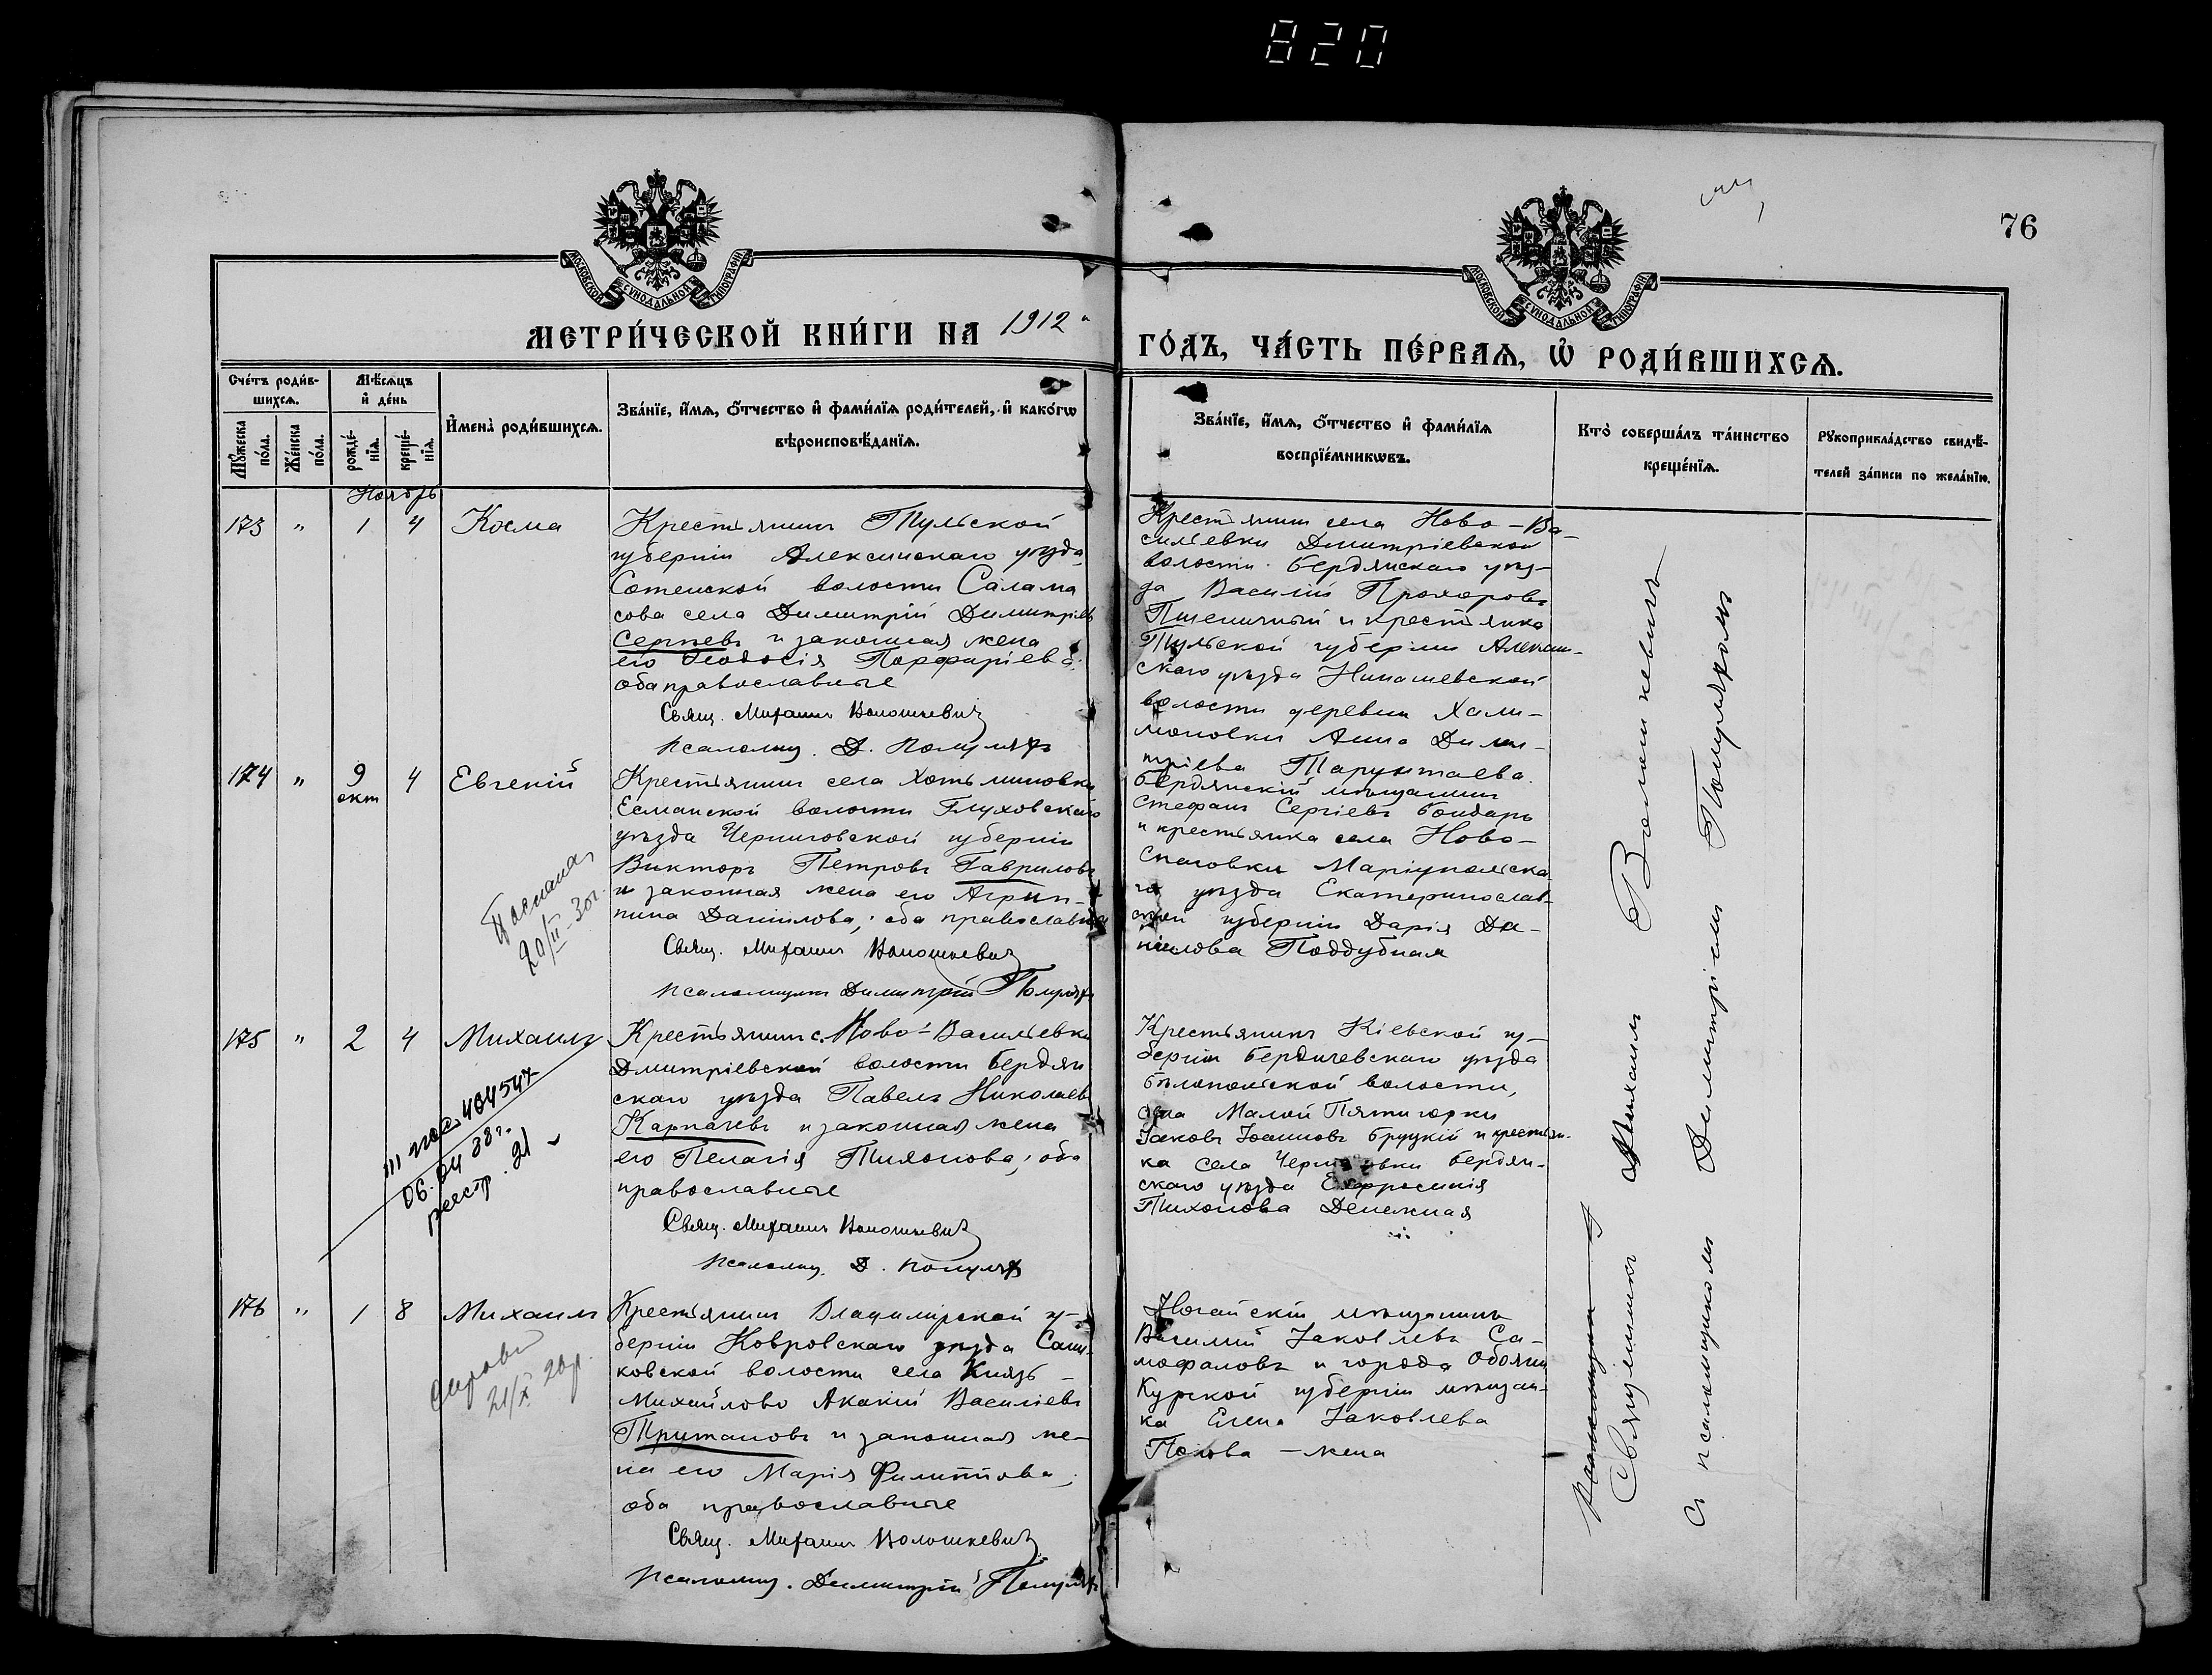 820
76
МОСКОВСКОЙ СѴНОДАЛЬНОЙ ТИПОГРАФІИ
МОСКОВСКОЙ СѴНОДАЛЬНОЙ ТИПОГРАФІИ
МЕТРИ́ЧЕСКОЙ КНИ́ГИ НА 1912
ГО́ДЪ, ЧА́СТЬ ПЕ́РВАѦ, Ѡ҆ РОДИ́ВШИХСѦ.
Сче́тъ роди́в-
шихсѧ.
Мѣ́сѧцъ
и҆ де́нь
Мꙋ́жеска
по́ла.
Же́нска
по́ла.
рожде́-
нїѧ.
креще́-
нїѧ.
И҆мена̀ роди́вшихсѧ.
Зва́нїе, и҆́мѧ, ѻ҆́тчество и҆ фами́лїѧ роди́телей, и҆ како́гѡ
вѣроисповѣ́данїѧ.
Зва́нїе, и҆́мѧ, ѻ҆́тчество и҆ фами́лїѧ
воспрїе́мникѡвъ.
Кто̀ соверша́лъ та́инство
креще́нїѧ.
Рꙋкоприкла́дство свидѣ́-
телей за́писи по жела́нїю.
Ноябрь
173 " 1 4 Косма
Крестьянинъ Тульской
губерніи Алексинскаго уѣзда,
Сотенской волости Салама
сова села Димитрій Димитріевъ
Сергѣевъ и законная жена
его Ѳеодосія Порфиріева;
оба православные
Свящ. Михаилъ Волошкевичъ
Псаломщ. Д.
Крестьянинъ села Ново-Ва-
сильевки Дмитріевской
волости Бердянскаго уѣз-
да Василій Прохоровъ
Пшеничный и крестьянка
Тульской губерніи Алексин-
скаго уѣзда
волости деревни Хали-
моновки Анна Дими-
тріева
174 " 9 окт 4 Евгеній
Крестьянинъ села Хотьминовки
Есманской волости Глуховскаго
уѣзда Черниговской губерніи
Викторъ Петровъ Гавриловъ
и законная жена его Агрип-
пина Даніилова; оба православные
Свящ. Михаилъ Волошкевичъ
Псаломщикъ Димитрій
20/II-30г.
Бердянскій мѣщанинъ
Стефанъ Сергіевъ Бондарь
и крестьянка села Ново-
спасовки Маріупольска-
го уѣзда Екатеринослав-
ской губерніи Дарія Да-
ніилова Поддубная
175 " 2 4 Михаилъ
Крестьянинъ с. Ново-Васильевки
Дмитріевской волости Бердян
скаго уѣзда Павелъ Николаевъ
Карпачевъ и законная жена
его Пелагія Тихонова; оба
православные
Свящ. Михаилъ Волошкевичъ
Псаломщ. Д.
III пос 404547
06.04 38 г.
реестр. 21
Крестьянинъ Кіевской гу-
берніи Бердичевскаго уѣзда
Бѣлопольской волости,
села Малой Пятигорки
Іаковъ Іоанновъ Бруцкій и крестьян-
ка села Бердян-
скаго уѣзда Евфросинія
Тихонова Денежная
176 " 1 8 Михаилъ
Крестьянинъ Владимірской гу-
берніи Ковровскаго уѣзда Сан-
ковской волости села Князь-
Михайлово Акакій Василіевъ
и законная же-
на его Марія Филиппова;
оба православные
Свящ. Михаилъ Волошкевичъ
Псаломщ. Димитрій
Ногайскій мѣщанинъ
Василій Іаковлевъ Са-
мофаловъ и города Обояни
Курской губерніи мѣщан-
ка Елена Іаковлева
Попова — жена
Священникъ Михаилъ Волошкевичъ
съ псаломщикомъ Димитріемъ